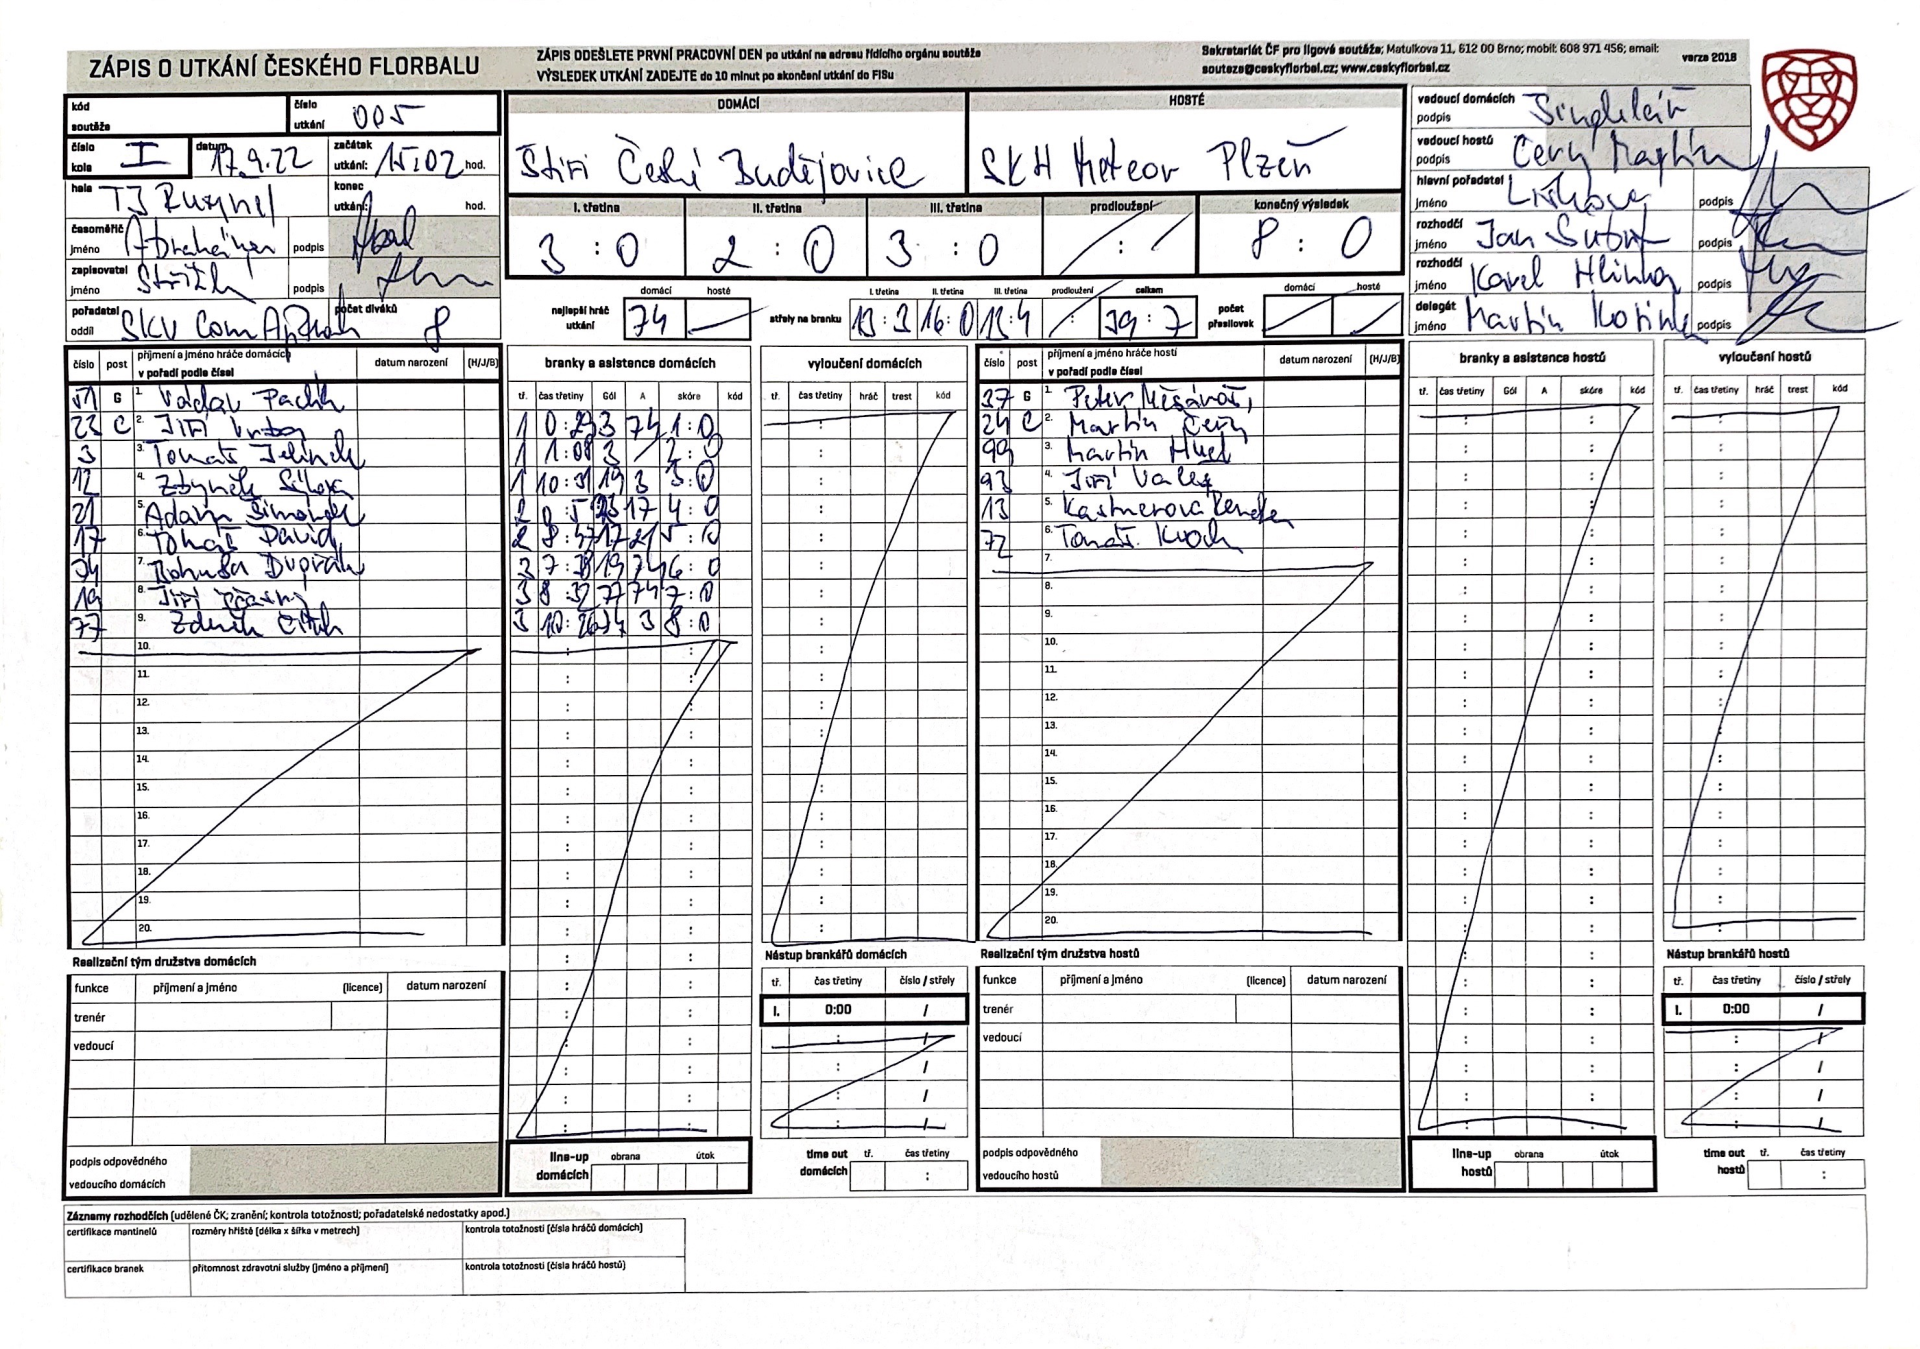 ZÁPIS O UTKÁNÍ ČESKÉHO FLORBALU
ZÁPIS ODEŠLETE PRVNÍ PRACOVNÍ DEN po utkání na adresu řídícího orgánu soutěže
VÝSLEDEK UTKÁNÍ ZADEJTE do 10 minut po skončení utkání do FISu
Sekretariát ČF pro ligové soutěže; Matulkova 11, 612 00 Brno; mobil: 608 971 456; email:
souteze@ceskyflorbal.cz; www.ceskyflorbal.cz
verze 2018
kód soutěže
číslo utkání 005
číslo kola I
datum 17.9.22
začátek utkání: 15:02 hod.
hala TJ
konec utkání: hod.
časoměřič jméno podpis
zapisovatel jméno podpis
pořadatel oddíl SKV
počet diváků 8
DOMÁCÍ
Štíři České Budějovice
HOSTÉ
SKH Meteor Plzeň
I. třetina II. třetina III. třetina prodloužení konečný výsledek
3 : 0 2 : 0 3 : 0 : 8 : 0
nejlepší hráč utkání domácí hosté
74
střely na branku I. třetina II. třetina III. třetina prodloužení celkem
13 : 3 16 : 0 : 4 : 39 : 7
počet přesilovek domácí hosté
vedoucí domácích podpis
vedoucí hostů podpis Černý Martin
hlavní pořadatel jméno podpis
rozhodčí jméno Jan podpis
rozhodčí jméno Karel Hlinka podpis
delegát jméno Martin podpis
číslo post příjmení a jméno hráče domácích v pořadí podle čísel datum narození (H/J/B)
G 1. Václav
23 C 2. Jiří Vrba
3 3. Tomáš Jelínek
12 4. Zbyněk Sýkora
21 5. Adam Šimonek
17 6. Tomáš David
7. Bohuša Dvořák
19 8. Jiří
77 9. Zdeněk
10.
11.
12.
13.
14.
15.
16.
17.
18.
19.
20.
branky a asistence domácích
tř. čas třetiny Gól A skóre kód
1 0:29 3 74 1:0
1 1:08 3 2:0
1 10:31 19 3 3:0
2 23 17 4:0
2 8:47 17 21 5:0
3 7:38 19 74 6:0
3 8:32 77 74 7:0
3 10:26 74 3 8:0
vyloučení domácích
tř. čas třetiny hráč trest kód
číslo post příjmení a jméno hráče hostí v pořadí podle čísel datum narození (H/J/B)
37 G 1. Peter
24 C 2. Martin Černý
99 3. Martin
93 4. Jiří Valeš
13 5. Kastnerova
72 6. Tomáš
7.
8.
9.
10.
11.
12.
13.
14.
15.
16.
17.
18.
19.
20.
branky a asistence hostů
tř. čas třetiny Gól A skóre kód
vyloučení hostů
tř. čas třetiny hráč trest kód
Realizační tým družstva domácích
funkce příjmení a jméno (licence) datum narození
trenér
vedoucí
podpis odpovědného
vedoucího domácích
line-up domácích obrana útok
Nástup brankářů domácích
tř. čas třetiny číslo / střely
I. 0:00 /
time out domácích tř. čas třetiny
:
Realizační tým družstva hostů
funkce příjmení a jméno (licence) datum narození
trenér
vedoucí
podpis odpovědného
vedoucího hostů
line-up hostů obrana útok
Nástup brankářů hostů
tř. čas třetiny číslo / střely
I. 0:00 /
time out hostů tř. čas třetiny
:
Záznamy rozhodčích (udělené ČK; zranění; kontrola totožnosti; pořadatelské nedostatky apod.)
certifikace mantinelů rozměry hřiště (délka x šířka v metrech) kontrola totožnosti (čísla hráčů domácích)
certifikace branek přítomnost zdravotní služby (jméno a příjmení) kontrola totožnosti (čísla hráčů hostů)